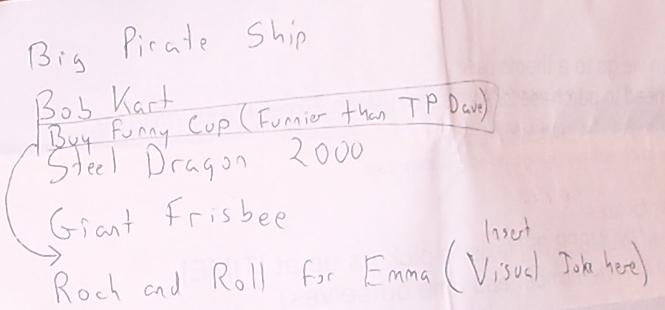 Big Pirate Ship
Bob Kart
Buy Funny Cup (Funnier than TP Dave)
Steel Dragon 2000
Giant Frisbee
Insert
Rock and Roll for Emma (Visual Joke here)